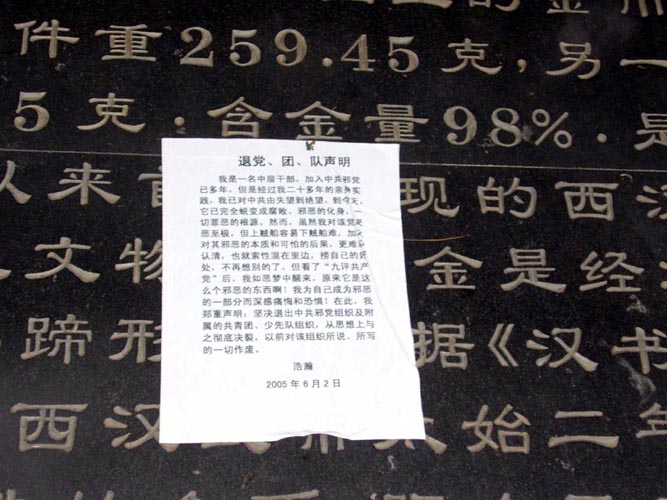 的金
件重259.45克，另一
5克．含金量98%．是
以来 现的西
文物 金是经
蹄形 据《汉书
西汉 太始二年
退党、团、队声明
我是一名中层干部，加入中共邪党
已多年，但是经过我二十多年的亲身实
践，我已对中共由失望到绝望，到今天，
它已完全蜕变成腐败、邪恶的化身，一
切罪恶的根源。然而，虽然我对该党
恶至极，但上贼船容易下贼船难，加
对其邪恶的本质和可怕的后果，更难
认清，也就索性混在里边，捞自己的好
处，不再想别的了，但看了“九评共产
党”后，我如恶梦中醒来，原来它是这
么个邪恶的东西啊！我为自己成为邪恶
的一部分而深感痛悔和恐惧！在此，我
郑重声明：坚决退出中共邪党组织及附
属的共青团、少先队组织，从思想上与
之彻底决裂，以前对该组织所说、所写
的一切作废。
浩瀚
2005年6月2日